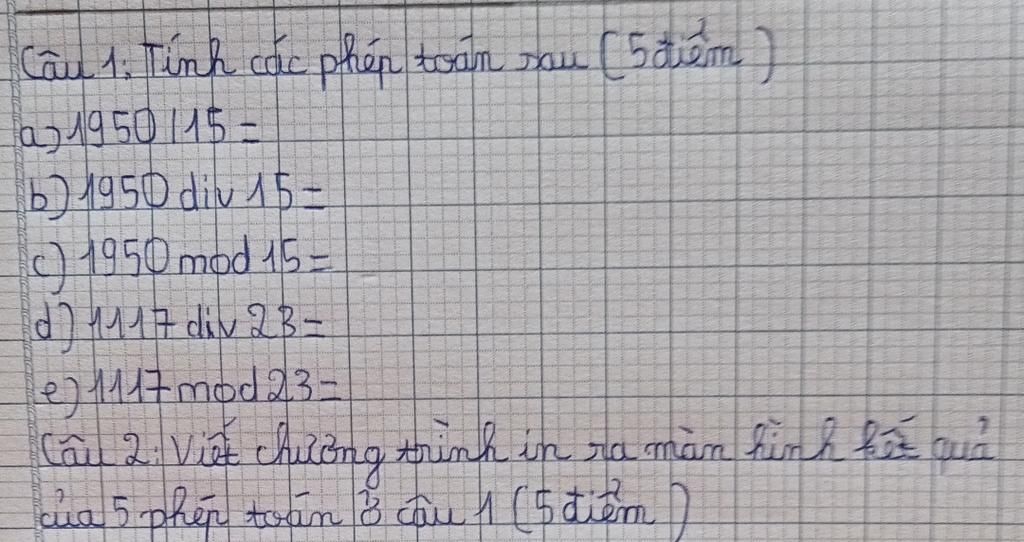 Câu 1: Tính các phép toán sau (5 điểm)
a) 1950/15=
b) 1950 div 15=
c) 1950 mod 15=
d) 1117 div 23=
e) 1117 mod 23=
Câu 2: Viết chương trình in ra màn hình kết quả
của 5 phép toán ở câu 1 (5 điểm)